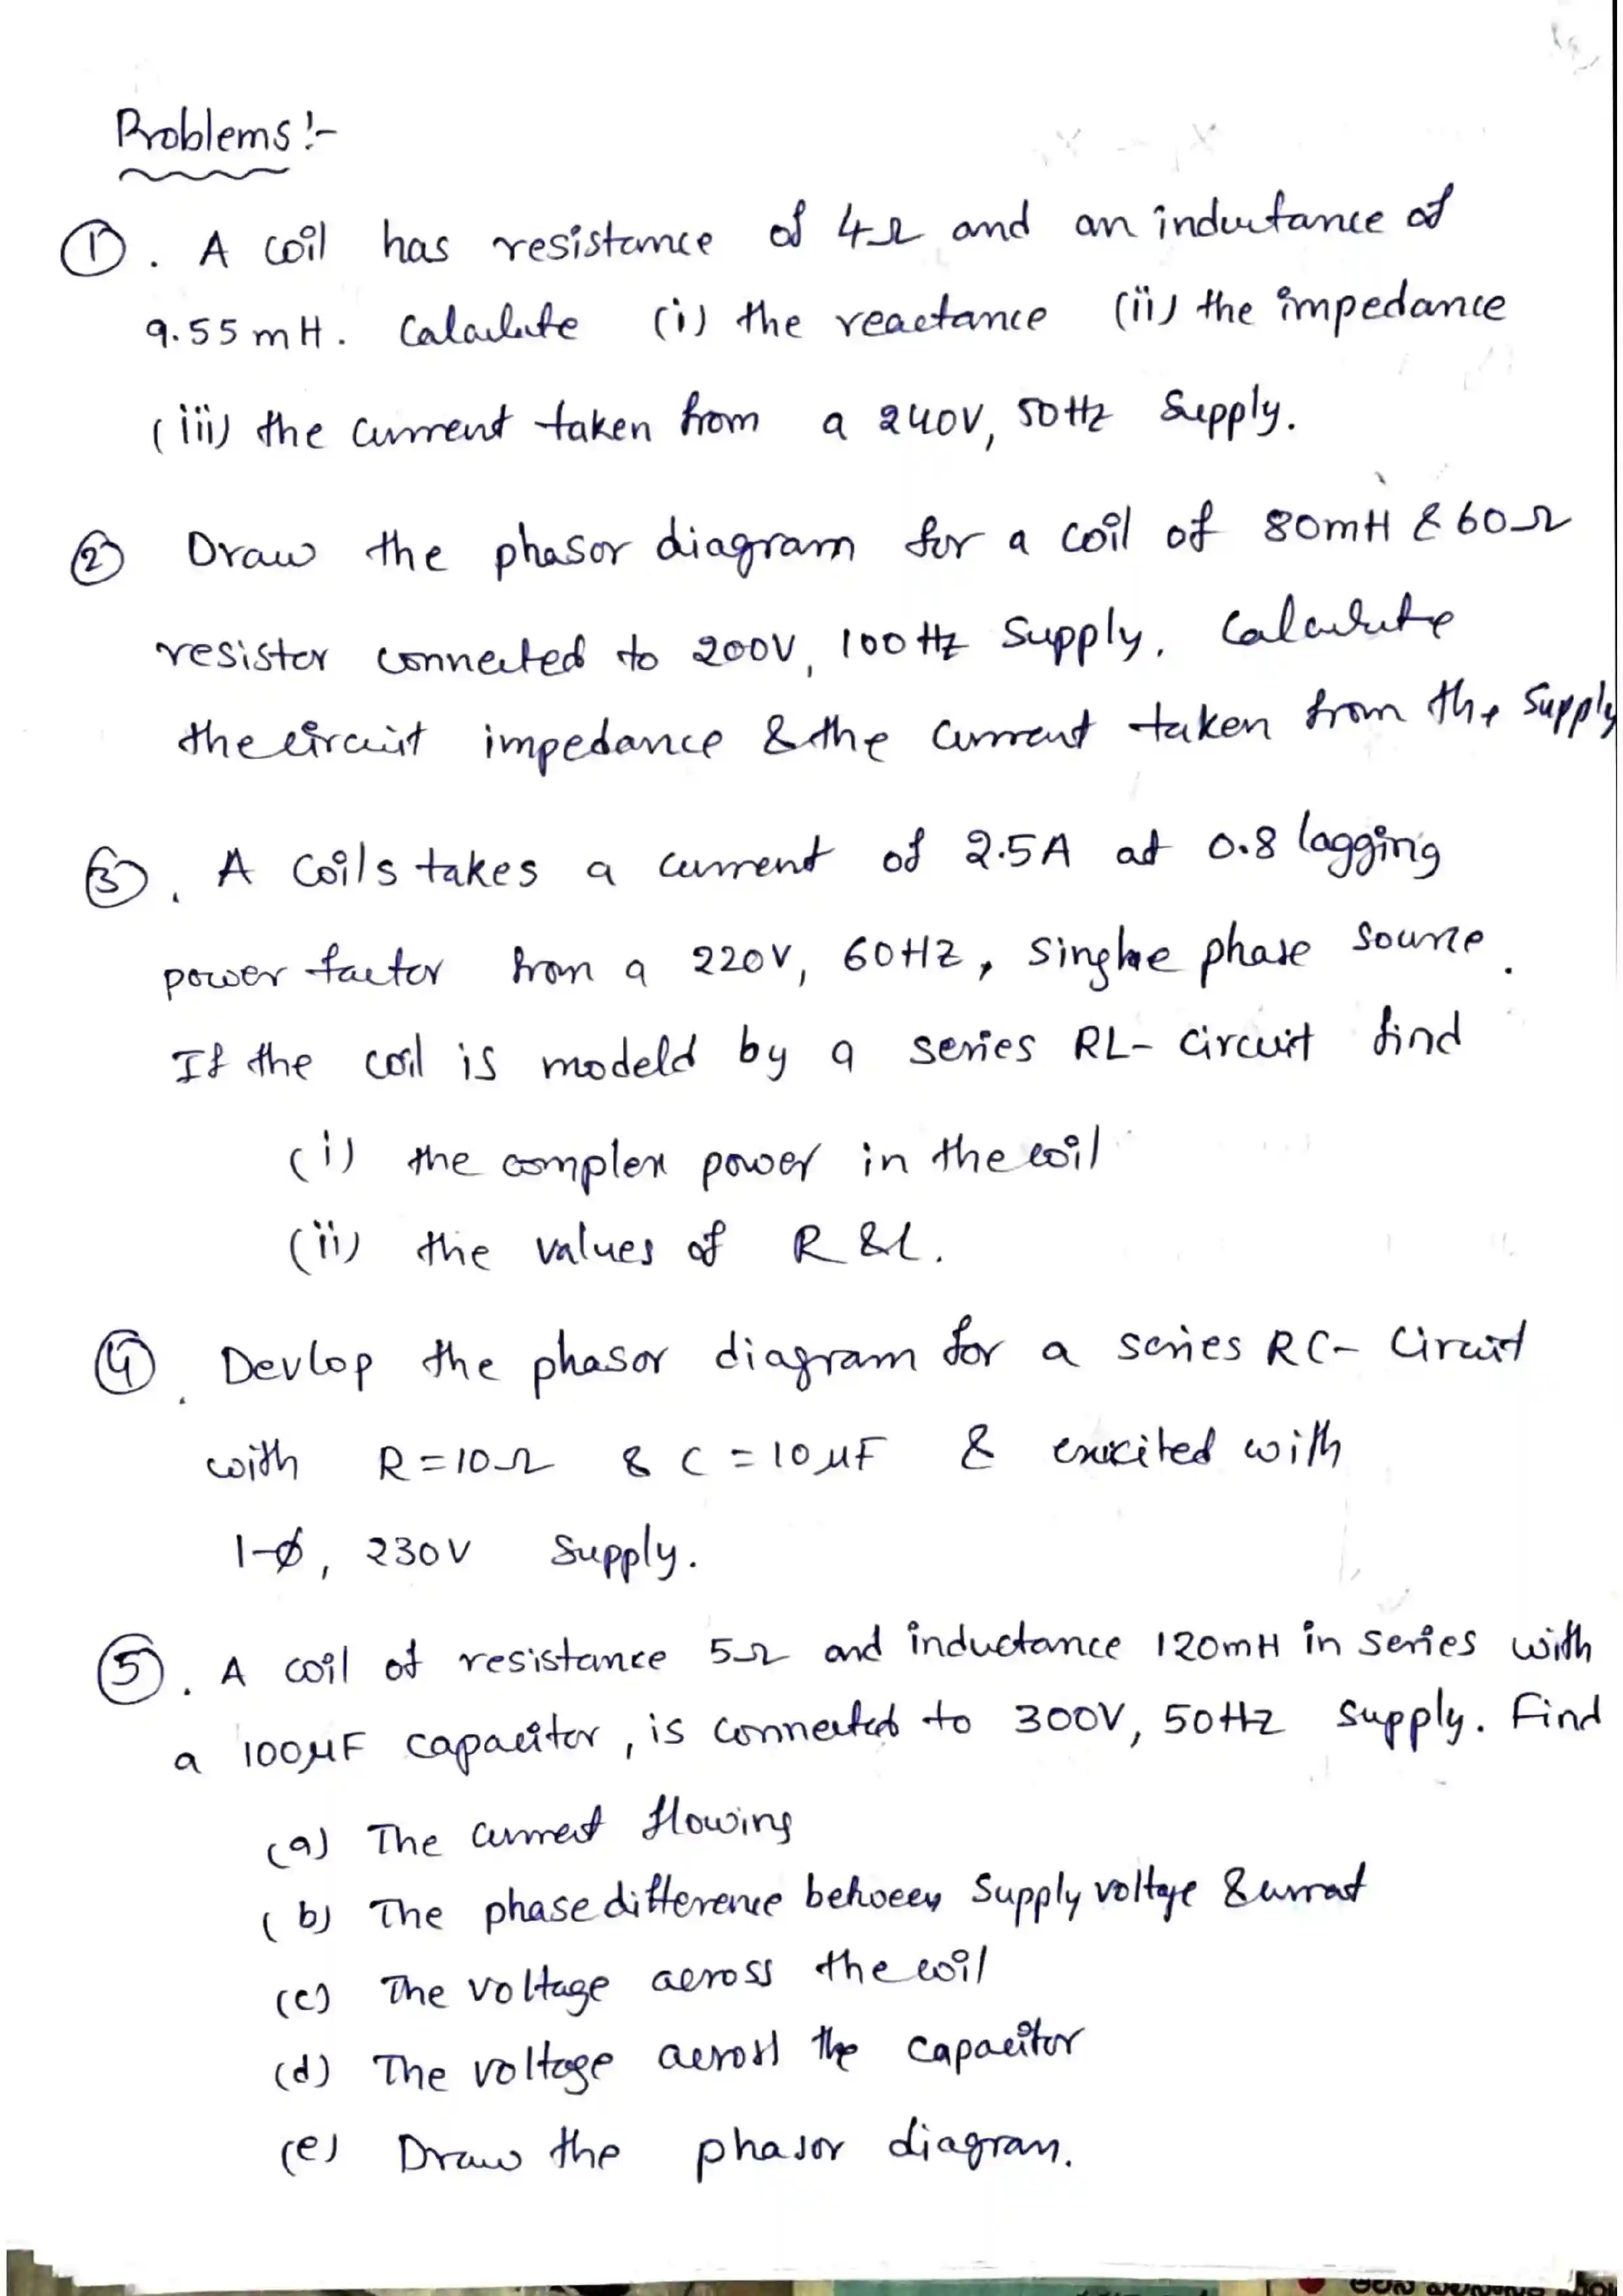 Problems :-
① . A coil has resistance of 4Ω and an inductance of
9.55 mH. Calculate (i) the reactance (ii) the impedance
(iii) the current taken from a 240V, 50Hz Supply.
② Draw the phasor diagram for a coil of 80mH & 60Ω
resistor connected to 200V, 100Hz Supply. Calculate
the circuit impedance & the current taken from the Supply
③ . A Coils takes a current of 2.5A at 0.8 lagging
power factor from a 220V, 60HZ, Single phase source.
If the coil is modeld by a series RL- Circuit find
(i) the complex power in the coil
(ii) the values of R & L.
④ . Devlop the phasor diagram for a series RC- Circuit
with R = 10Ω & C = 10 μF & exicited with
1-ϕ, 230V Supply.
⑤ . A coil of resistance 5Ω and inductance 120mH in series with
a 100μF capacitor, is connected to 300V, 50Hz Supply. Find
(a) The current flowing
(b) The phase difference between Supply voltage & current
(c) The voltage across the coil
(d) The voltage across the capacitor
(e) Draw the phasor diagram.